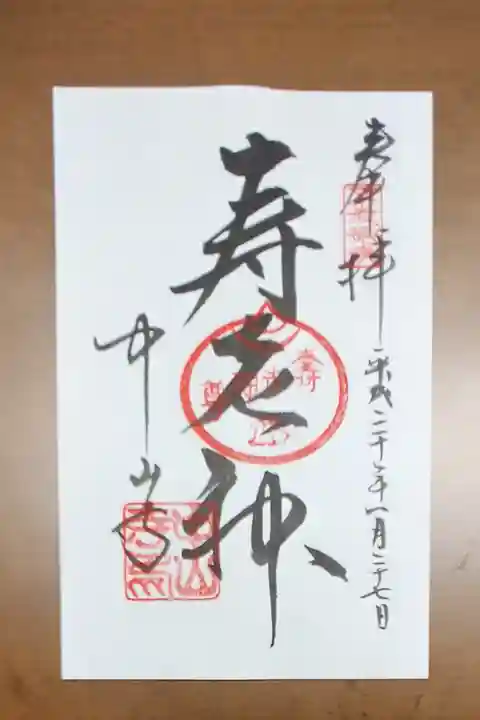 奉拝 平成二十年一月二十七日
寿老神
中山寺